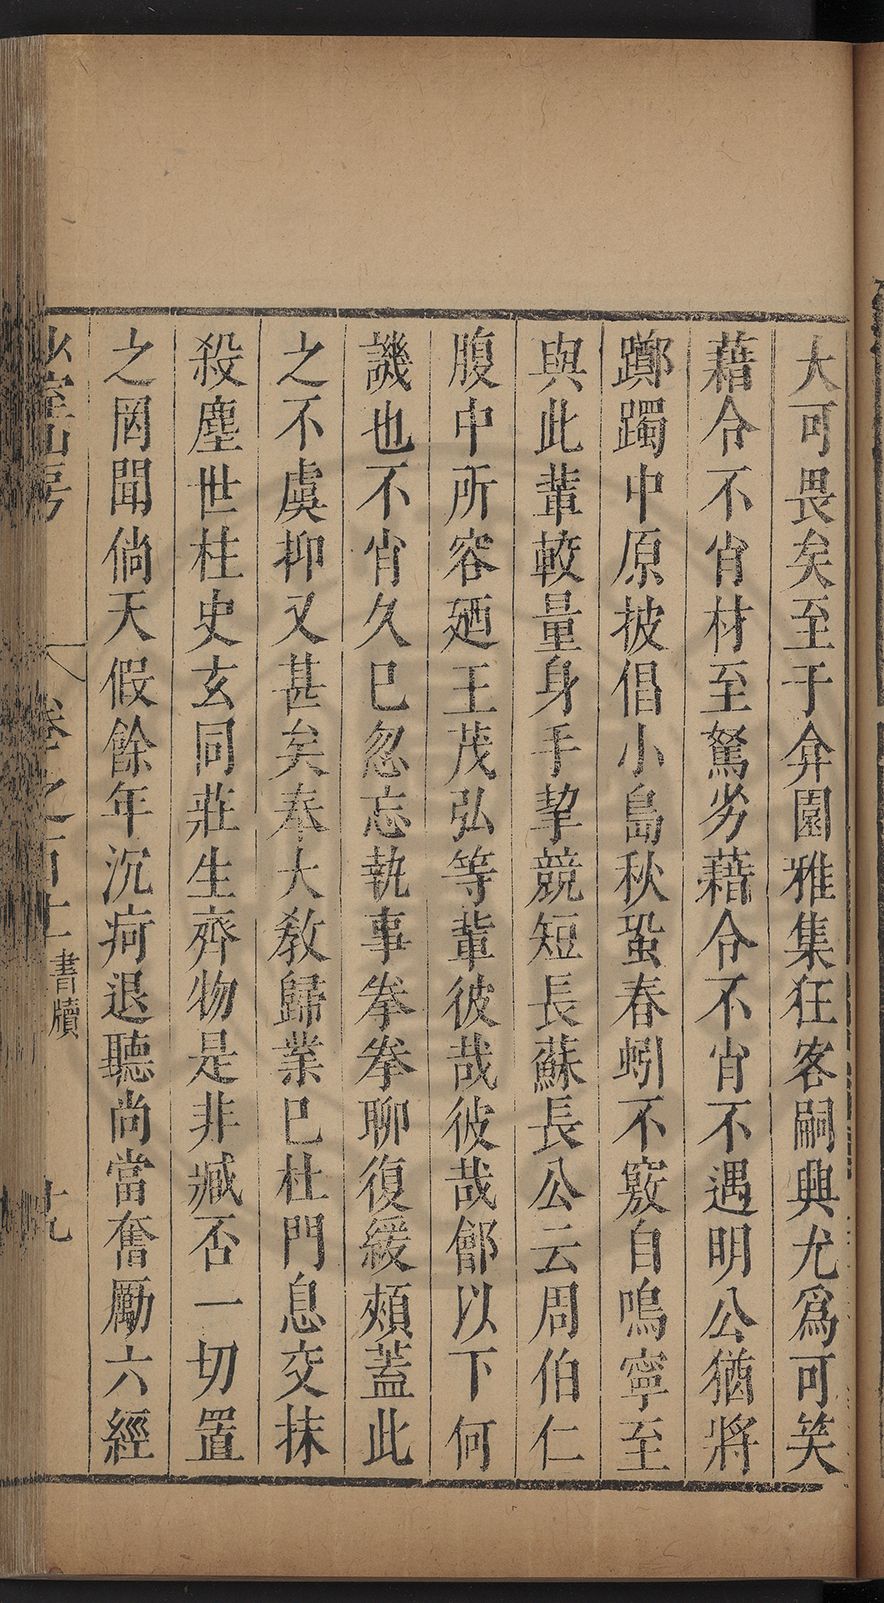 大可畏矣至于弇園雅集狂客嗣興尤爲可笑
藉令不肖材至駑劣藉令不肖不遇明公猶將
躑躅中原披倡小島秋蛩春蚓不竅自鳴寧至
與此輩較量身手挈競短長蘇長公云周伯仁
腹中所容廼王茂弘等輩彼哉彼哉鄶以下何
譏也不肖久已忽忘執事拳拳聊復緩頰蓋此
之不虞抑又甚矣奉大教歸業已杜門息交抹
殺塵世柱史玄同莊生齊物是非臧否一切置
之罔聞倘天假餘年沉疴退聽尚當奮勵六經
少室山房 卷之百十 書牘 十九